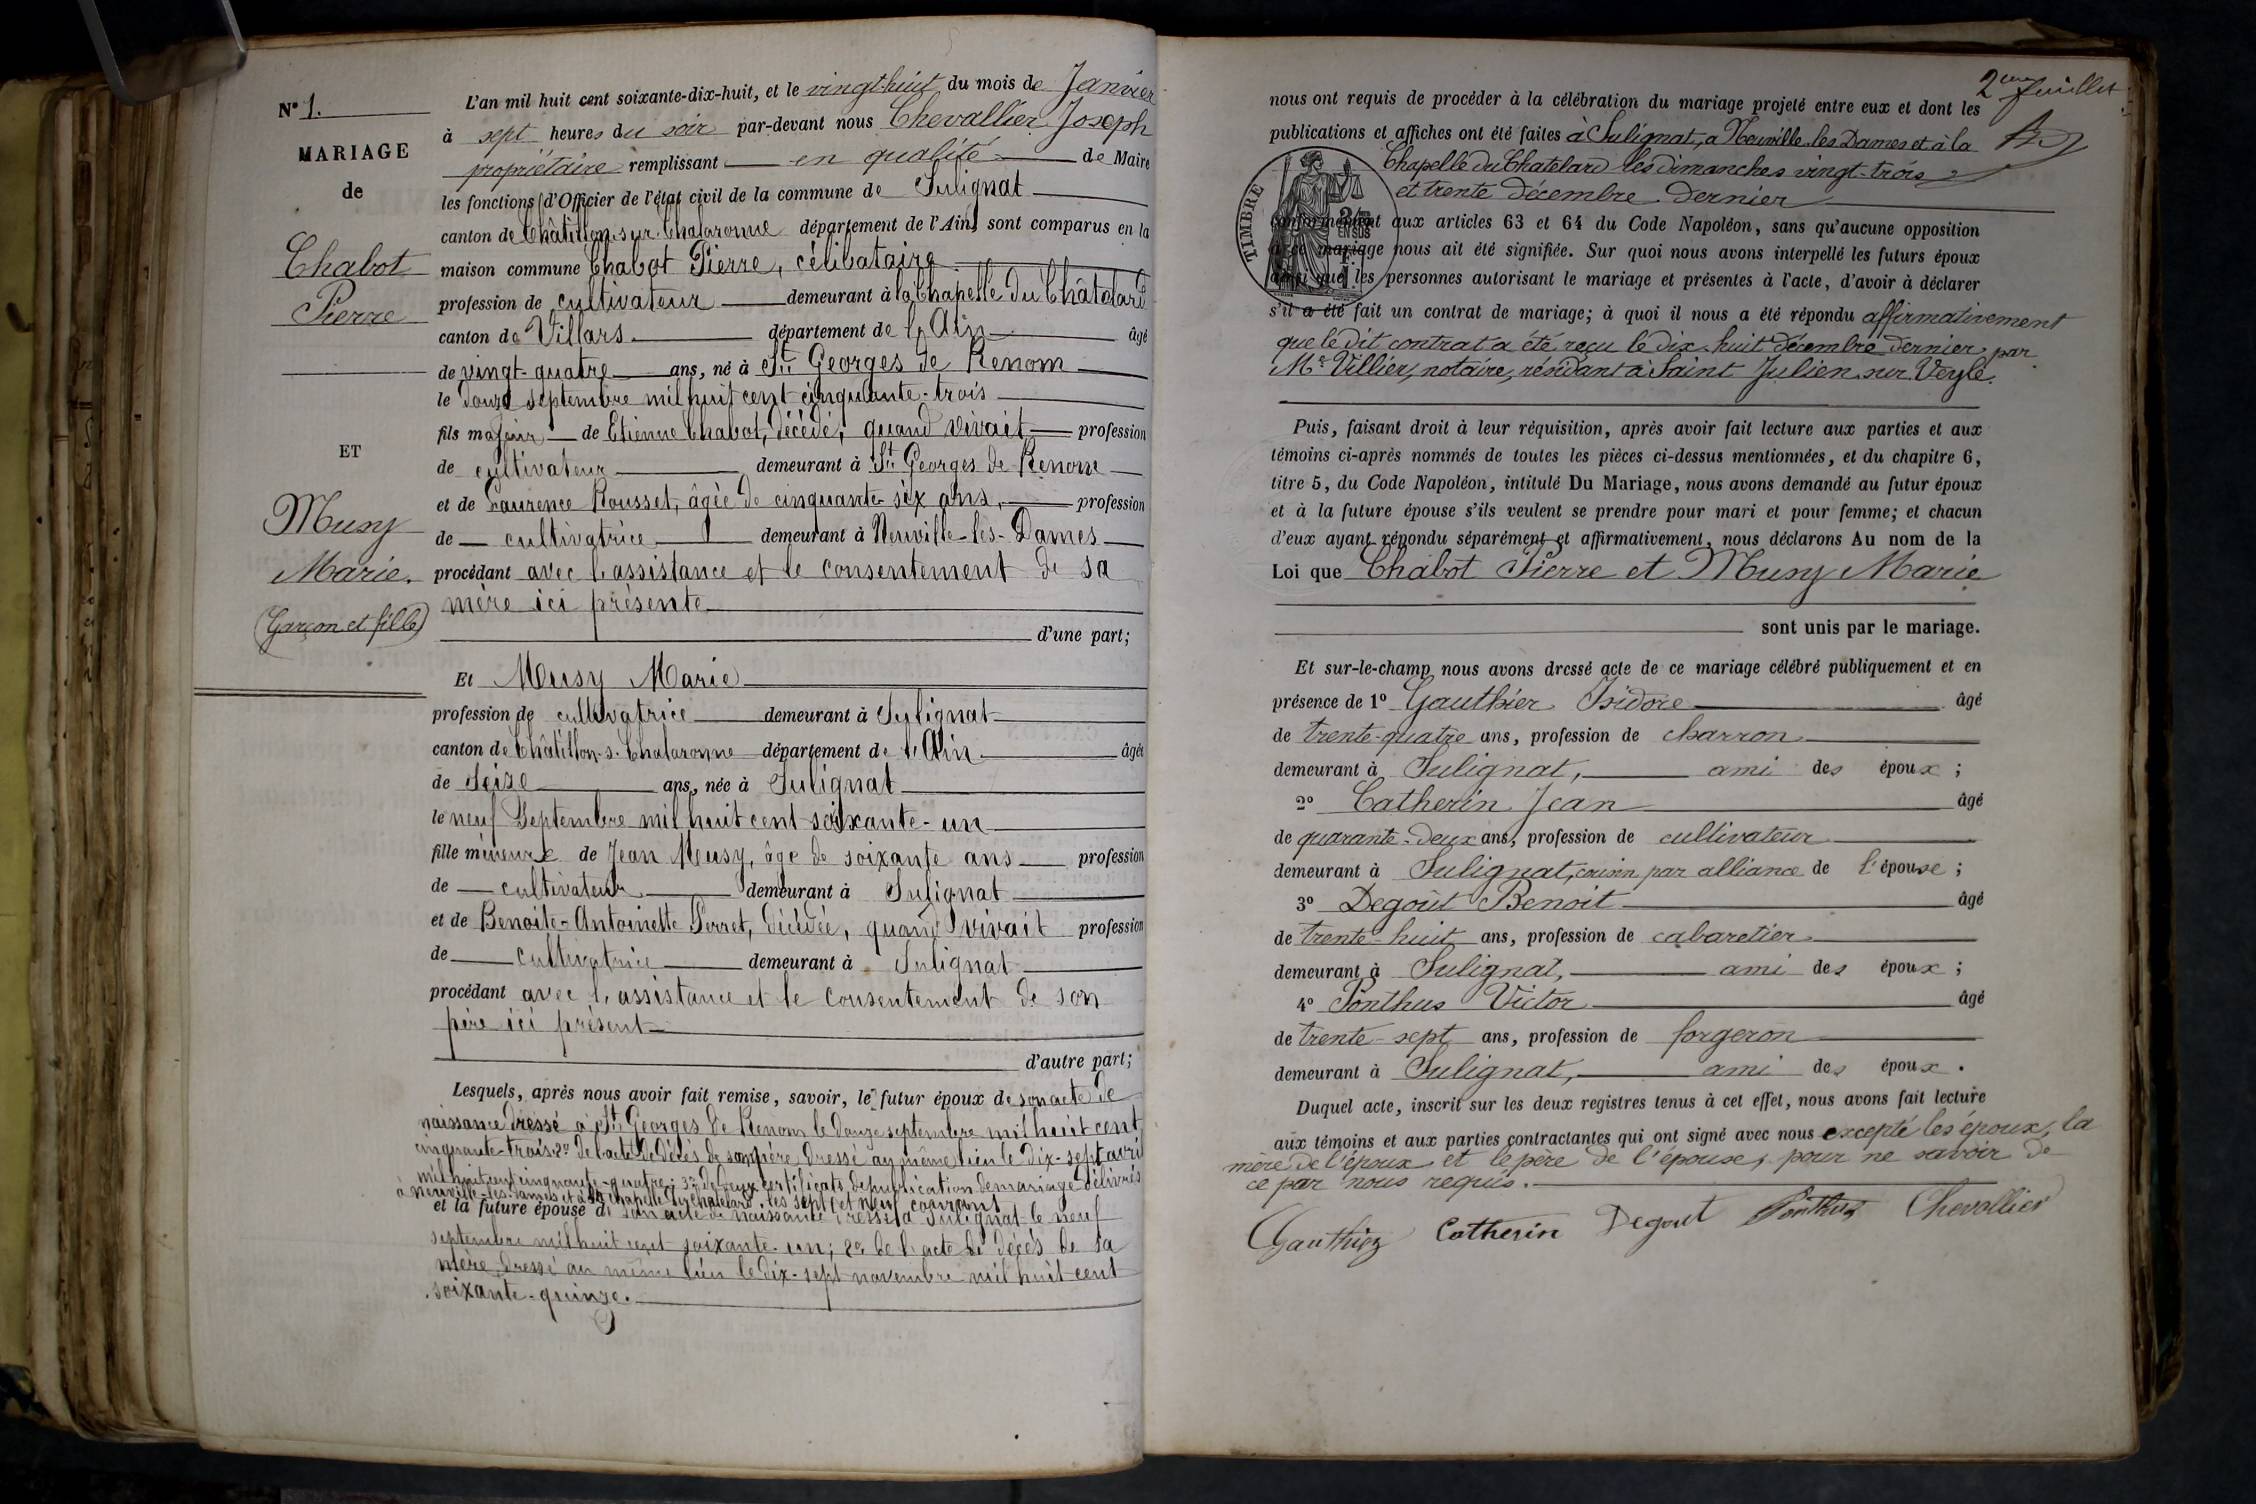 N° 1.
MARIAGE
de
Chabot
Pierre
ET
Musy
Marie.
(Garçon et fille)
L'an mil huit cent soixante-dix-huit, et le vingt-huit du mois de Janvier
à sept heures du soir par-devant nous Chevallier Joseph
propriétaire remplissant en qualité de Maire
les fonctions d'Officier de l'état civil de la commune de Sulignat
canton de Châtillon-sur-Chalaronne département de l'Ain, sont comparus en la
maison commune Chabot Pierre, célibataire
profession de cultivateur demeurant à la Chapelle du Châtelard
canton de Villars département de l'Ain âgé
de vingt-quatre ans, né à St Georges de Renom
le douze septembre mil huit cent cinquante-trois
fils majeur de Etienne Chabot, décédé, quand vivait profession
de cultivateur demeurant à St Georges de Renom
et de Laurence Rousset, âgée de cinquante-six ans, profession
de cultivatrice demeurant à Neuville-les-Dames
procédant avec l'assistance et le consentement de sa
mère ici présente
d'une part;
Et Musy Marie
profession de cultivatrice demeurant à Sulignat
canton de Châtillon-s-Chalaronne département de l'Ain âgée
de Seize ans, née à Sulignat
le neuf Septembre mil huit cent soixante-un
fille mineure de Jean Musy, âgé de soixante ans profession
de cultivateur demeurant à Sulignat
et de Benoite-Antoinette Perret, décédée, quand vivait profession
de cultivatrice demeurant à Sulignat
procédant avec l'assistance et le consentement de son
père ici présent
d'autre part;
Lesquels, après nous avoir fait remise, savoir, le futur époux de son acte de
naissance dressé à St Georges de Renom le douze septembre mil huit cent
cinquante-trois. 2° de l'acte de décès de son père dressé au même lieu le dix-sept avril
mil huit cent cinquante-quatre; 3° de deux certificats de publication de mariage délivrés
à Neuville-les-Dames et à la Chapelle du Chatelard les sept et neuf courant
et la future épouse de son acte de naissance dressé à Sulignat le neuf
septembre mil huit cent soixante-un; 2° de l'acte de décès de sa
mère dressé au même lieu le dix-sept novembre mil huit cent
soixante-quinze.
2eme feuillet
nous ont requis de procéder à la célébration du mariage projeté entre eux et dont les
publications et affiches ont été faites à Sulignat, à Neuville les Dames et à la
Chapelle du Chatelard les dimanches vingt-trois
et trente décembre dernier
TIMBRE
2/10 EN SUS
conformément aux articles 63 et 64 du Code Napoléon, sans qu'aucune opposition
à ce mariage nous ait été signifiée. Sur quoi nous avons interpellé les futurs époux
ainsi que les personnes autorisant le mariage et présentes à l'acte, d'avoir à déclarer
s'il a été fait un contrat de mariage; à quoi il nous a été répondu affirmativement
que le dit contrat a été reçu le dix-huit décembre dernier par
Me Villier, notaire, résidant à Saint Julien sur Veyle.
Puis, faisant droit à leur réquisition, après avoir fait lecture aux parties et aux
témoins ci-après nommés de toutes les pièces ci-dessus mentionnées, et du chapitre 6,
titre 5, du Code Napoléon, intitulé Du Mariage, nous avons demandé au futur époux
et à la future épouse s'ils veulent se prendre pour mari et pour femme; et chacun
d'eux ayant répondu séparément et affirmativement, nous déclarons Au nom de la
Loi que Chabot Pierre et Musy Marie
sont unis par le mariage.
Et sur-le-champ nous avons dressé acte de ce mariage célébré publiquement et en
présence de 1° Gauthier Isidore âgé
de trente-quatre ans, profession de charron
demeurant à Sulignat, ami des époux;
2° Catherin Jean âgé
de quarante-deux ans, profession de cultivateur
demeurant à Sulignat, cousin par alliance de l'épouse;
3° Degoût Benoit âgé
de trente-huit ans, profession de cabaretier
demeurant à Sulignat, ami des époux;
4° Ponthus Victor âgé
de trente-sept ans, profession de forgeron
demeurant à Sulignat, ami des époux.
Duquel acte, inscrit sur les deux registres tenus à cet effet, nous avons fait lecture
aux témoins et aux parties contractantes qui ont signé avec nous excepté les époux, la
mère de l'époux et le père de l'épouse, pour ne savoir de
ce par nous requis.
Gauthier Catherin Degout Ponthus Chevallier